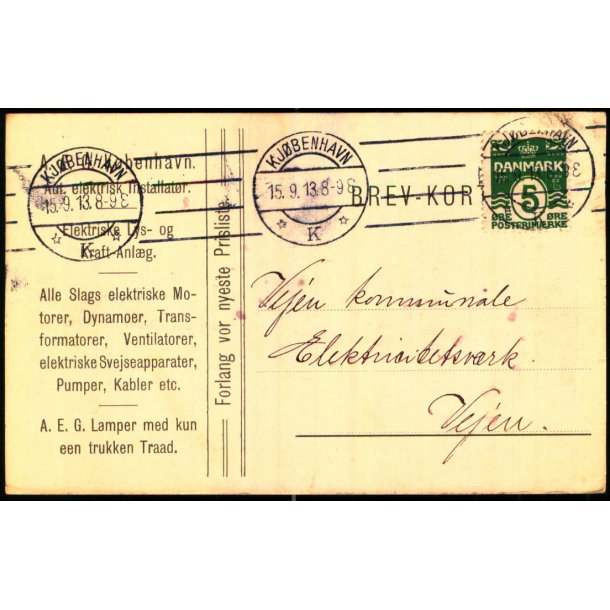 København.
Aut. elektrisk Installatør.
Elektriske Lys- og
Kraft-Anlæg.
Alle Slags elektriske Mo-
torer, Dynamoer, Trans-
formatorer, Ventilatorer,
elektriske Svejseapparater,
Pumper, Kabler etc.
A. E. G. Lamper med kun
een trukken Traad.
Forlang vor nyeste Prisliste.
KJØBENHAVN
15.9.13.8-9E
K
KJØBENHAVN
15.9.13.8-9E
K
BREV-KOR
KJØBENHAVN
DANMARK
5
ØRE ØRE
POSTFRIMÆRKE
Vejen kommunale
Elektricitetsværk.
Vejen.